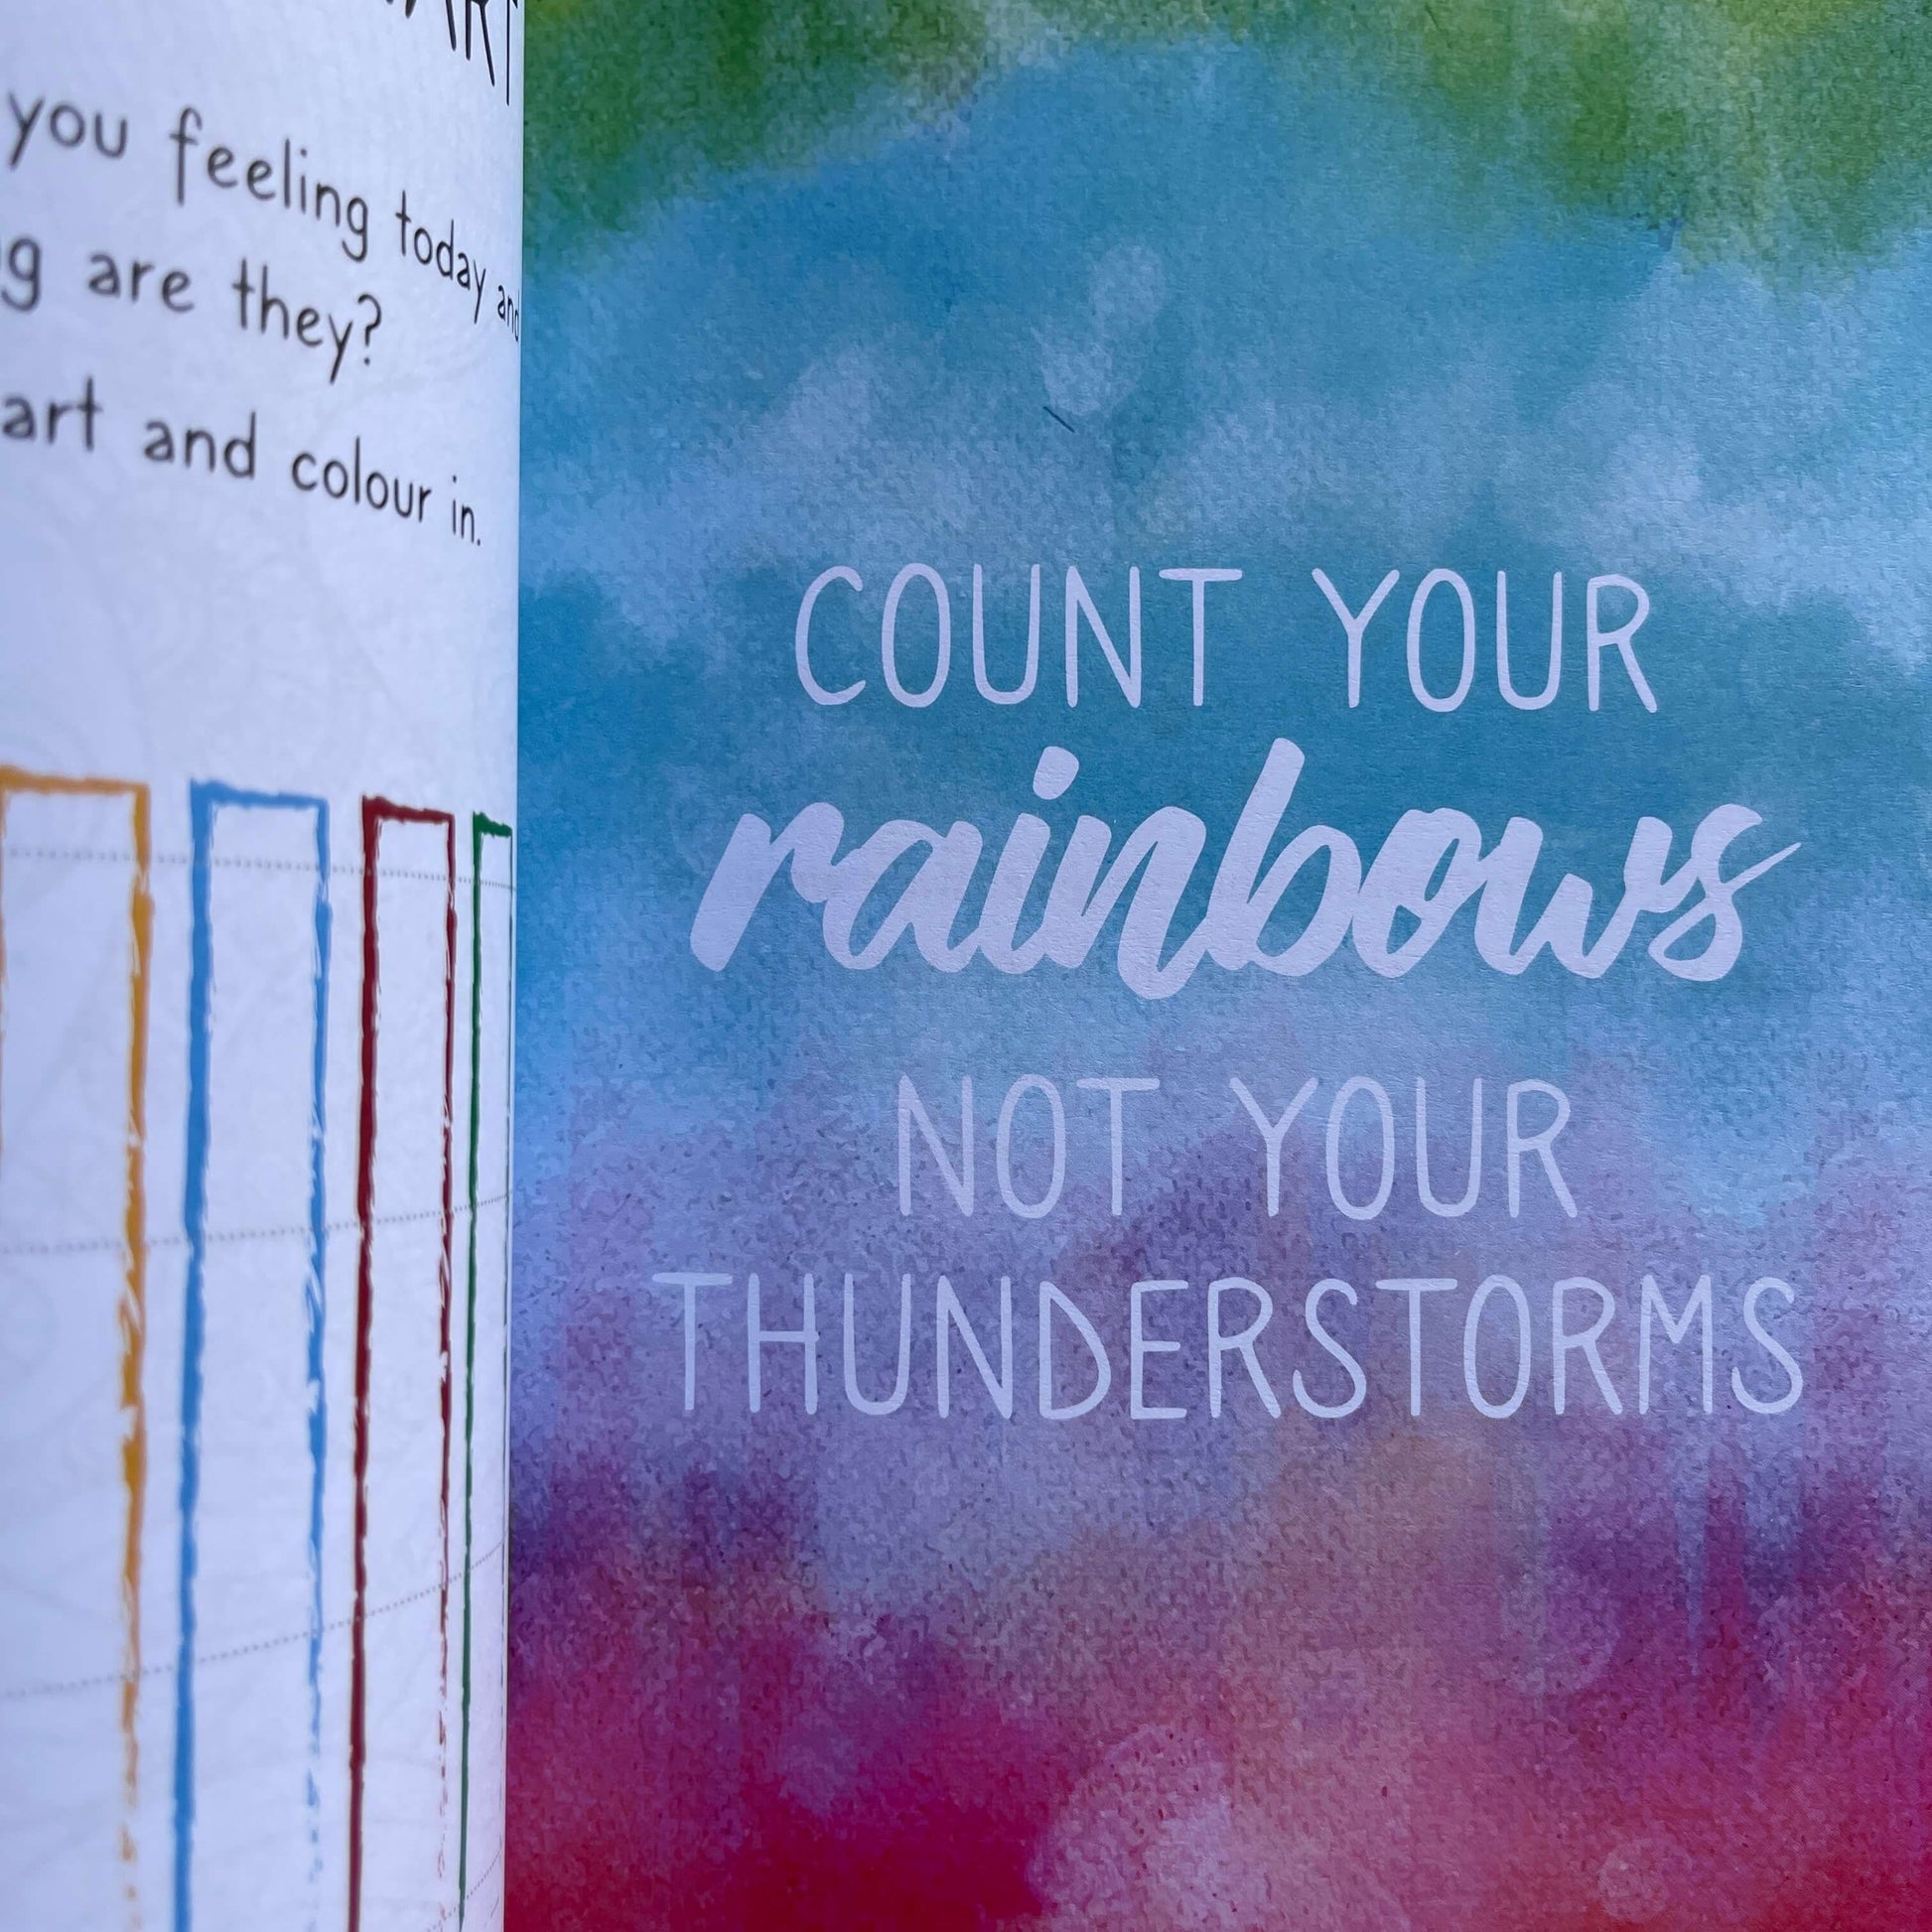 you feeling today and
are they?
and colour in.
COUNT YOUR
rainbows
NOT YOUR
THUNDERSTORMS